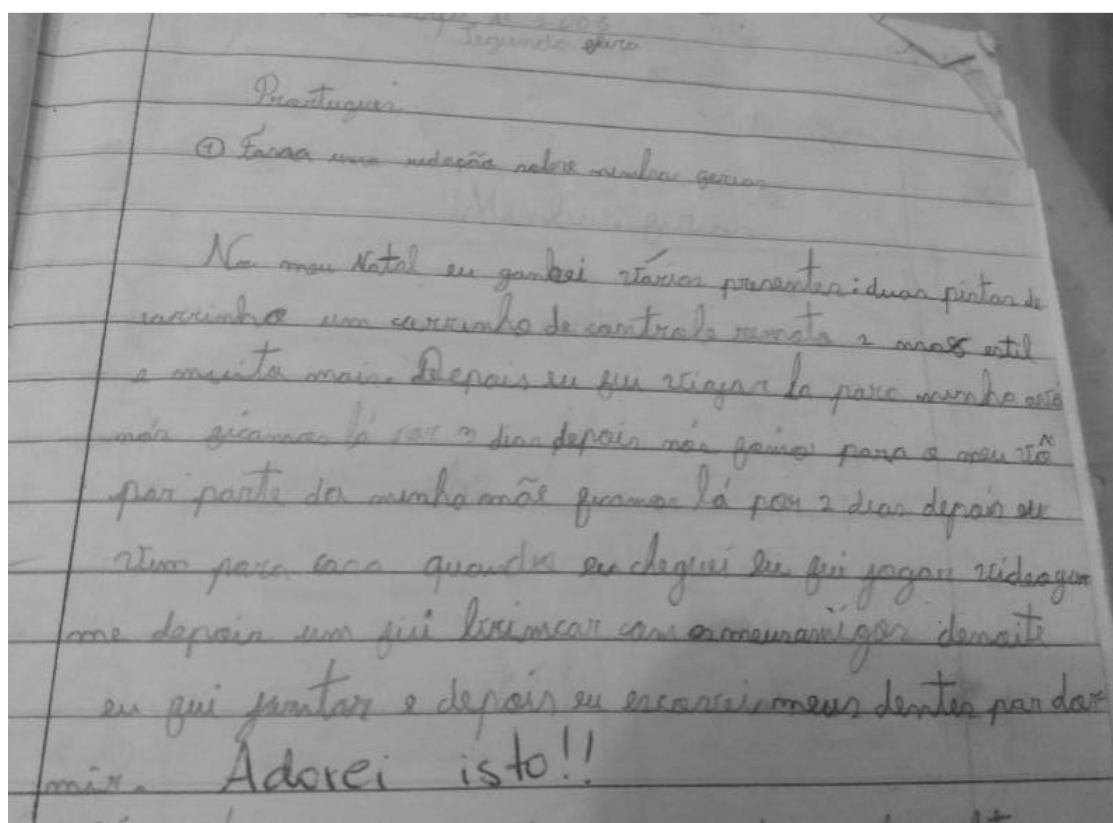 de 2008
Segunda feira
Portugues
① Fassa uma redação sobre minhas ferias
Minhas ferias
No meu Natal eu ganhei vários presentes: duas pistas de
carrinho um carrinho de controle remoto 2 max estil
e muito mais. Depois eu fui viajar la para minha avó
nós ficamos lá por 3 dias depois nós fomos para o meu vô
por parte da minha mãe ficamos lá por 2 dias depois eu
vim para casa quando eu cheguei eu fui jogar videoga
me depois um fui brincar com os meus amigos denoite
eu fui jantar e depois eu escovei meus dentes par dor
mir. Adorei isto!!